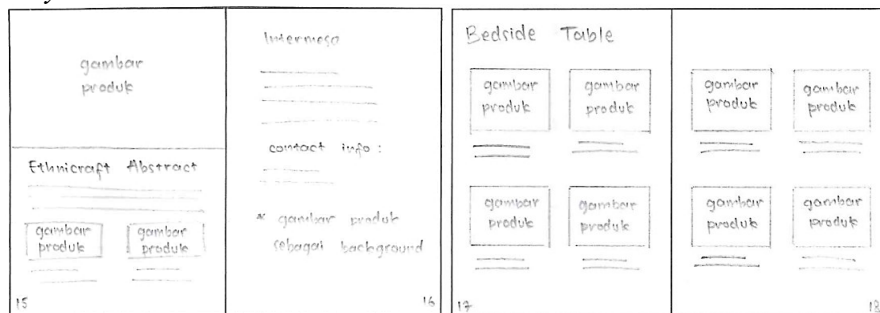 gambar
produk
Ethnicraft Abstract
gambar
produk
gambar
produk
15
Intermeso
contact info :
* gambar produk
sebagai background
16
Bedside Table
gambar
produk
gambar
produk
gambar
produk
gambar
produk
17
gambar
produk
gambar
produk
gambar
produk
gambar
produk
18